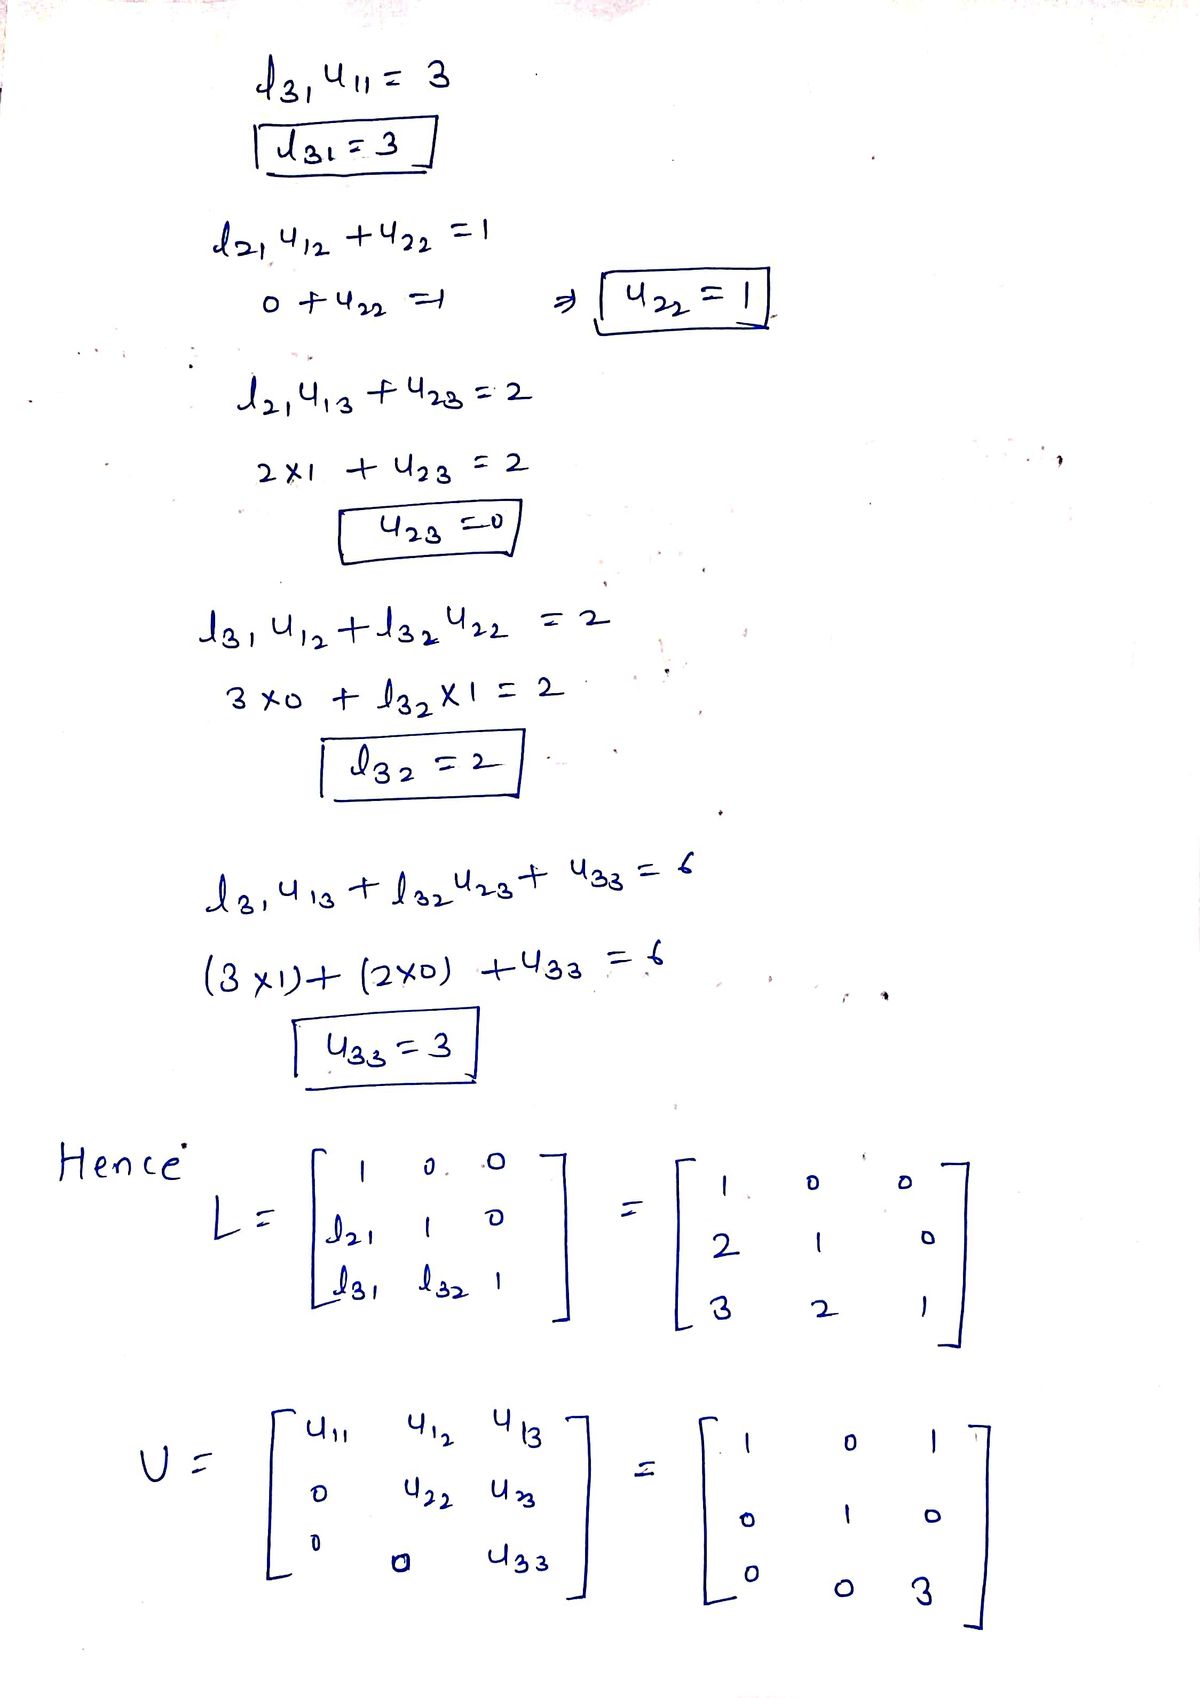 l₃₁ u₁₁ = 3
l₃₁ = 3
l₂₁ u₁₂ + u₂₂ = 1
0 + u₂₂ = 1 ⇒ u₂₂ = 1
l₂₁ u₁₃ + u₂₃ = 2
2 × 1 + u₂₃ = 2
u₂₃ = 0
l₃₁ u₁₂ + l₃₂ u₂₂ = 2
3 × 0 + l₃₂ × 1 = 2
l₃₂ = 2
l₃₁ u₁₃ + l₃₂ u₂₃ + u₃₃ = 6
(3 × 1) + (2 × 0) + u₃₃ = 6
u₃₃ = 3
Hence
L = [ 1 0 0 ] = [ 1 0 0 ]
[ l₂₁ 1 0 ] [ 2 1 0 ]
[ l₃₁ l₃₂ 1 ] [ 3 2 1 ]
U = [ u₁₁ u₁₂ u₁₃ ] = [ 1 0 1 ]
[ 0 u₂₂ u₂₃ ] [ 0 1 0 ]
[ 0 0 u₃₃ ] [ 0 0 3 ]